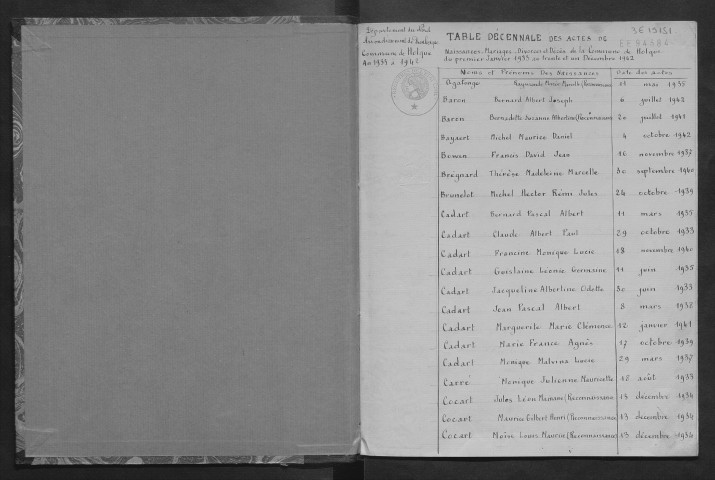 Département du Nord
Arrondissement de Dunkerque
Commune de Holque
An 1933 à 1942
TABLE DÉCENNALE DES ACTES DE
Naissances, Mariages, Divorces et Décès de la Commune de Holque
du premier Janvier 1933 au trente et un Décembre 1942
Noms et Prénoms Des Naissances Date des actes
Raymonde mai 1935
Baron Bernard Albert Joseph 6 juillet 1942
Baron Bernadette Suzanne Albertine (Reconnaissance 20 juillet 1941
Bayaert Michel Maurice Daniel 4 octobre 1942
Bowen Francis David Jean 16 novembre 1937
Brégnard Thérèse Madeleine Marcelle 30 septembre 1940
Brunelot Michel Hector Rémi Jules 24 octobre 1939
Cadart Bernard Pascal Albert 11 mars 1935
Cadart Claude Albert Paul 29 octobre 1933
Cadart Francine Monique Lucie 18 novembre 1940
Cadart Ghislaine Léonie Germaine 11 juin 1935
Cadart Jacqueline Albertine Odette 30 juin 1933
Cadart Jean Pascal Albert 8 mars 1938
Cadart Marguerite Marie Clémence 12 janvier 1941
Cadart Marie France Agnès 17 octobre 1939
Cadart Monique Malvina Lucie 29 mars 1937
Carré Monique Julienne Mauricette 18 août 1933
Cocart Jules Léon (Reconnaissance 13 décembre 1934
Cocart Maurice Gilbert Henri (Reconnaissance 13 décembre 1934
Cocart Moïse Louis Maurice (Reconnaissance) 13 décembre 1934